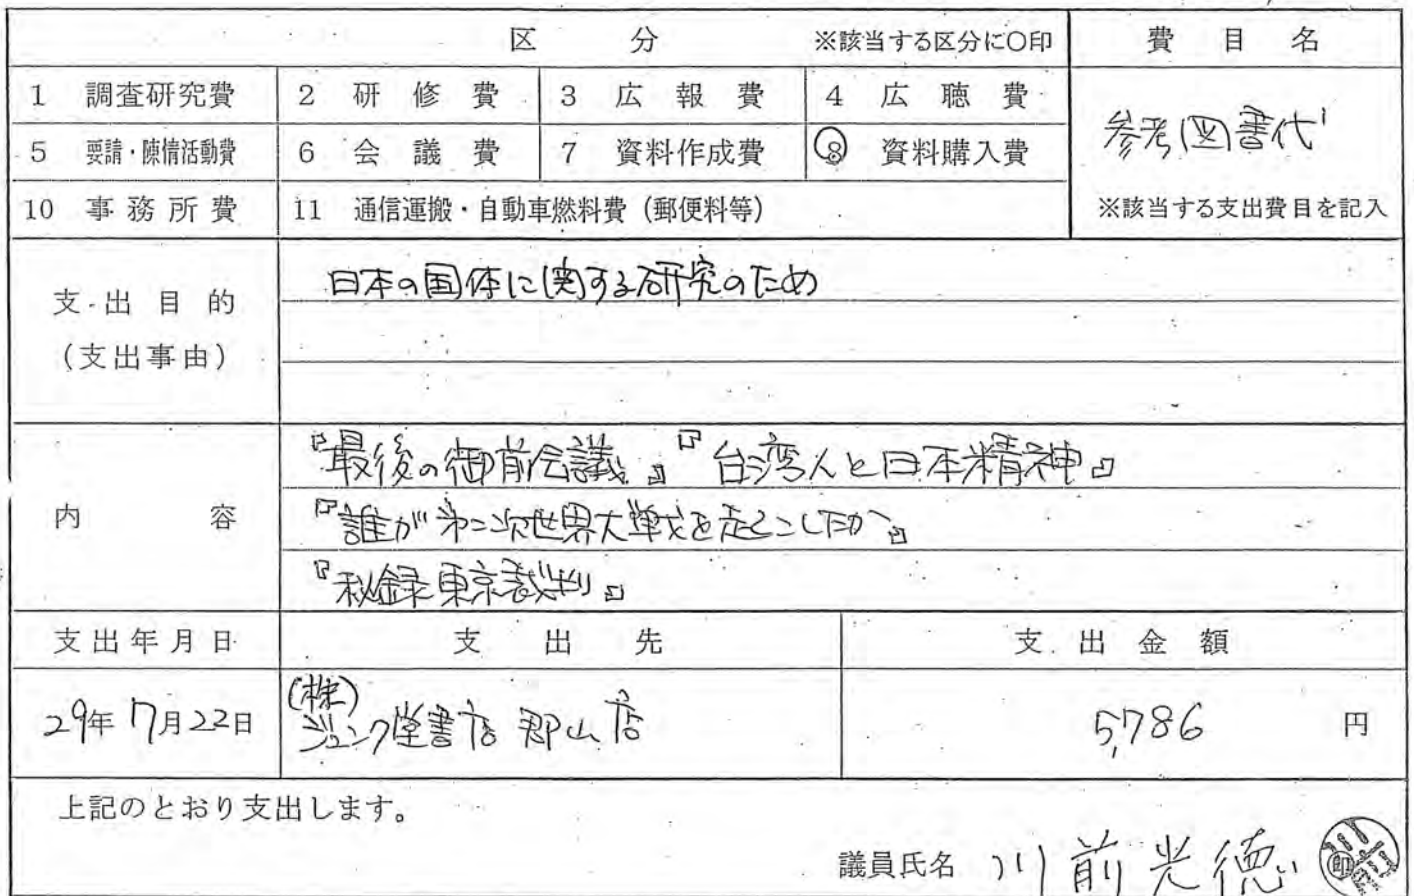 区分 ※該当する区分に○印 費目名
1 調査研究費 2 研修費 3 広報費 4 広聴費
参考図書代
5 要請・陳情活動費 6 会議費 7 資料作成費 8 資料購入費
10 事務所費 11 通信運搬・自動車燃料費(郵便料等) ※該当する支出費目を記入
日本の国体に関する研究のため
支出目的
(支出事由)
『最後の御前会議』『台湾人と日本精神』
内容 『誰が第二次世界大戦を起こしたか』
『秘録東京裁判』
支出年月日 支出先 支出金額
(株)
29年7月22日 ジュンク堂書店 郡山店 5,786円
上記のとおり支出します。
議員氏名 川前光徳